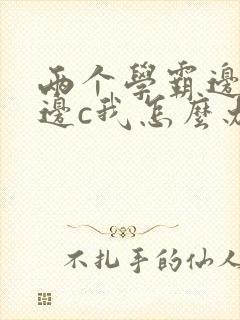 两个學霸邊
邊c我怎麼办
不扎手的仙人